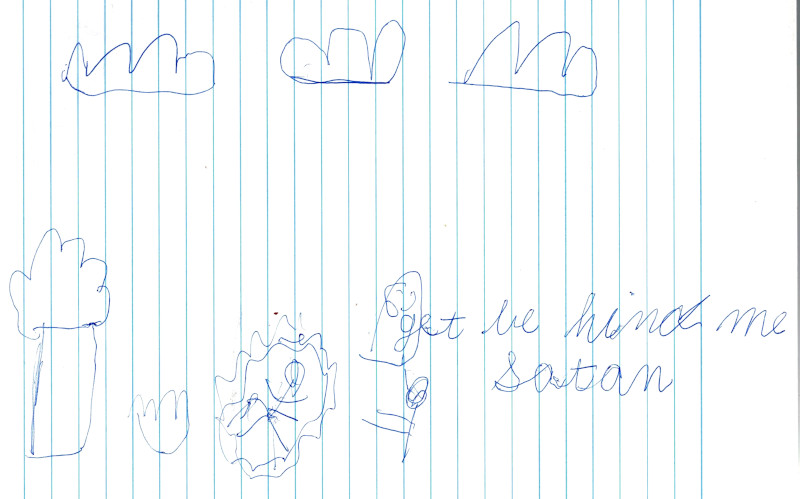 get be hind me
satan